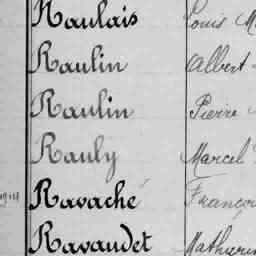 Raulais Louis M
Raulin Albert
Raulin Pierre
Rauly Marcel
Ravaché Françoi
Ravaudet Mathurin